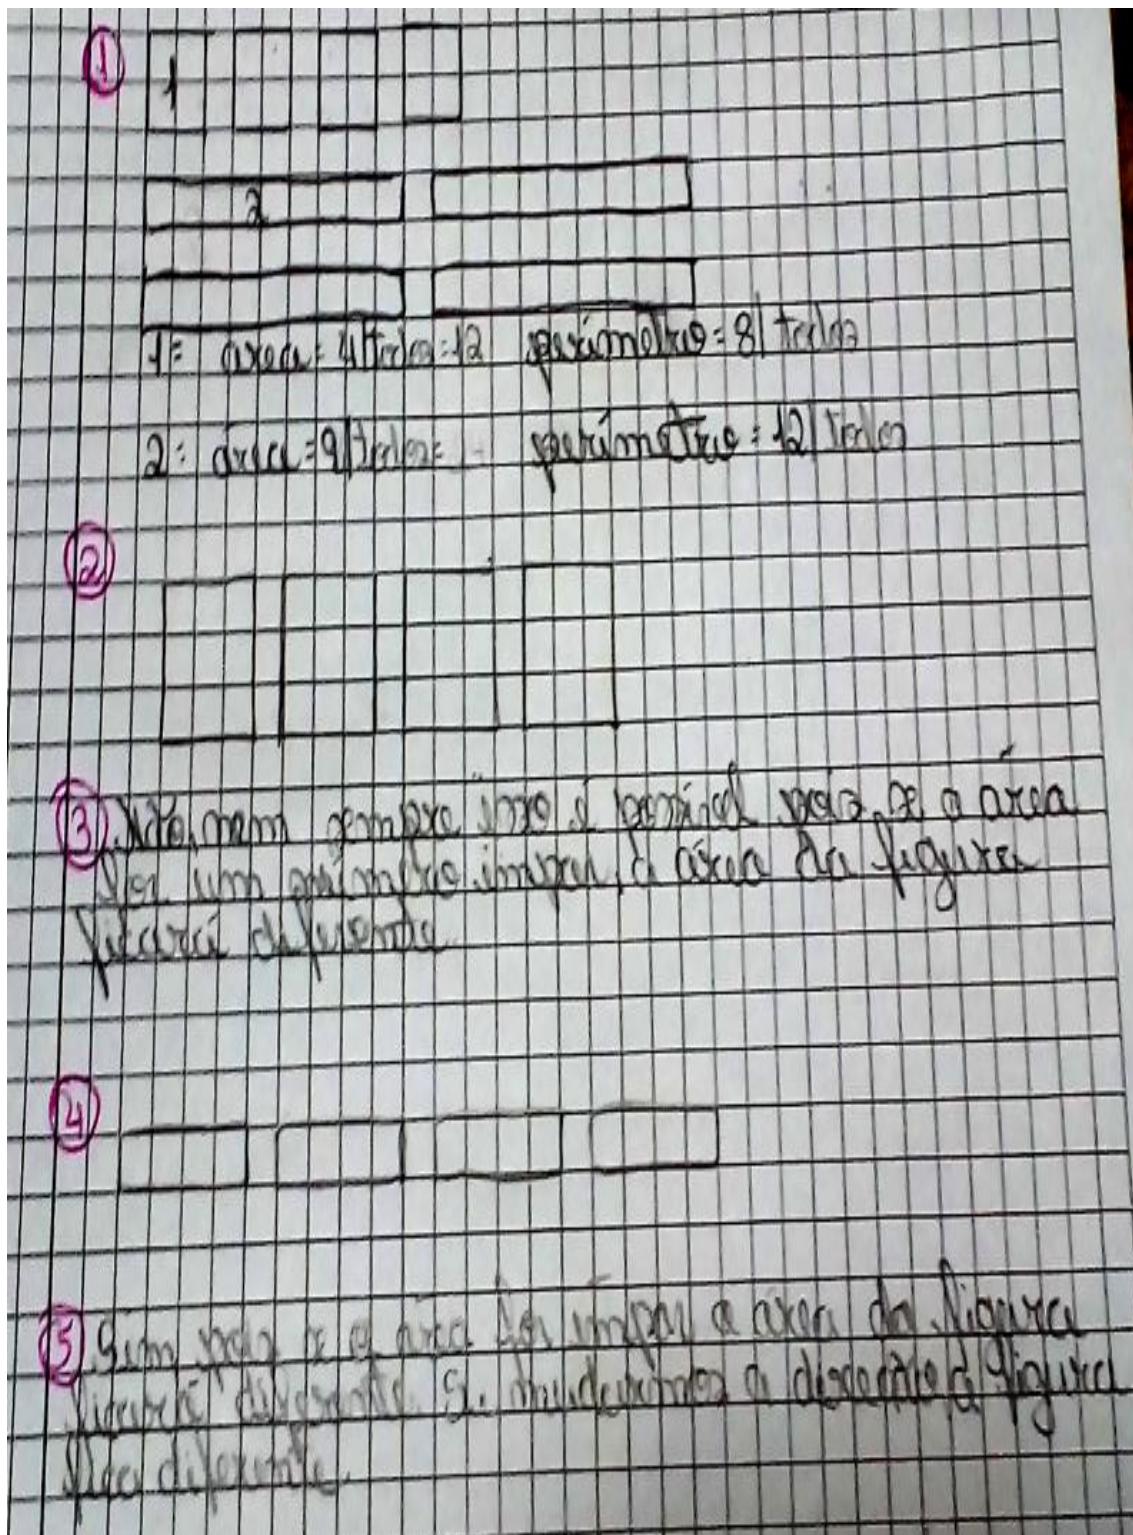 1
1
2
1= area = 4|todos=12 perímetro = 8| todos
2= área = 9|todos= perímetro = 12| todos
2
3 Não, nem sempre isso é possível pois se a área
for um número impar, a área da figura
ficará diferente
4
5 Sim pois se a área for impar a área da figura
ficará diferente. Se mudarmos a figura
fica diferente.